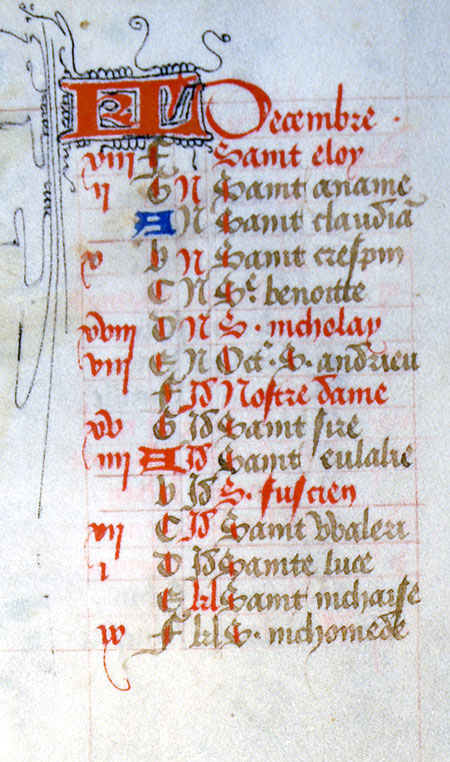 KL Decembre ·
xviii F Saint eloy
ii G N Saint aname
A N Saint claudiã
x b N Saint crespin
C N Sᵉ. benoitte
xviii D N S · nicholay
vii E N Octᵉ. S · andrieu
F Id Nostre dame
xv G Id Saint sire
iiii A Id Saint eulalie
b Id S · fuscien
xii C Id Saint Waleri
i D Id Sainte luce
E kl Saint nichaise
ix F kl S · nichomede